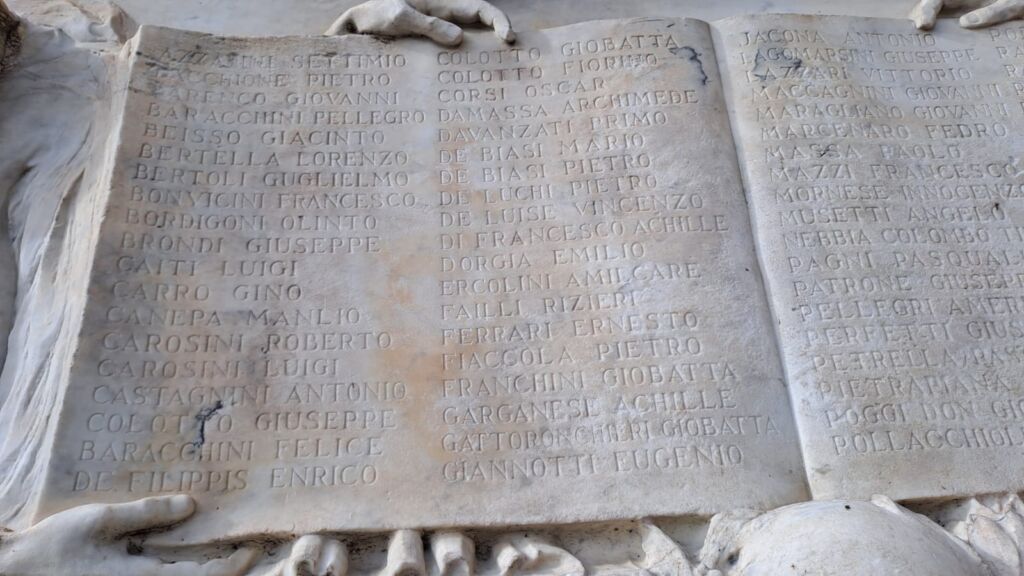 SETTIMIO
PIETRO
GIOVANNI
BARACCHINI PELLEGRO
BEISSO GIACINTO
BERTELLA LORENZO
BERTOLI GUGLIELMO
BONVICINI FRANCESCO
BORDIGONI OLINTO
BRONDI GIUSEPPE
CAITI LUIGI
CARRO GINO
CANEPA MANLIO
CAROSINI ROBERTO
CAROSINI LUIGI
CASTAGNINI ANTONIO
GIUSEPPE
BARACCHINI FELICE
DE FILIPPIS ENRICO
COLOTTO GIOBATTA
COLOTTO FIORINO
CORSI OSCAR
DAMASSA ARCHIMEDE
DAVANZATI PRIMO
DE BIASI MARIO
DE BIASI PIETRO
DE LUCHI PIETRO
DE LUISE VINCENZO
DI FRANCESCO ACHILLE
DORGIA EMILIO
ERCOLINI AMILCARE
FAILLI RIZIERI
FERRARI ERNESTO
FIACCOLA PIETRO
FRANCHINI GIOBATTA
GARGANESE ACHILLE
GATTORONCHIERI GIOBATTA
GIANNOTTI EUGENIO
JACONA ANTONIO
LAGOMARSINI GIUSEPPE
LAZZARI VITTORIO
MACCAGNINI GIOVANNI
MARAGLIANO GIOVANNI
MARCENARO PEDRO
MASSA PAOLO
MAZZI FRANCESCO
MORNESE INNOCENZO
MUSETTI ANGELO
NEBBIA COLOMBO
PAGNI PASQUAL
PATRONE GIUSEPP
PELLEGRI AMER
PERFETTI GIUS
PETRELLA
PIETRAPIANA
POGGI DON GIO
POLLACCHIOL